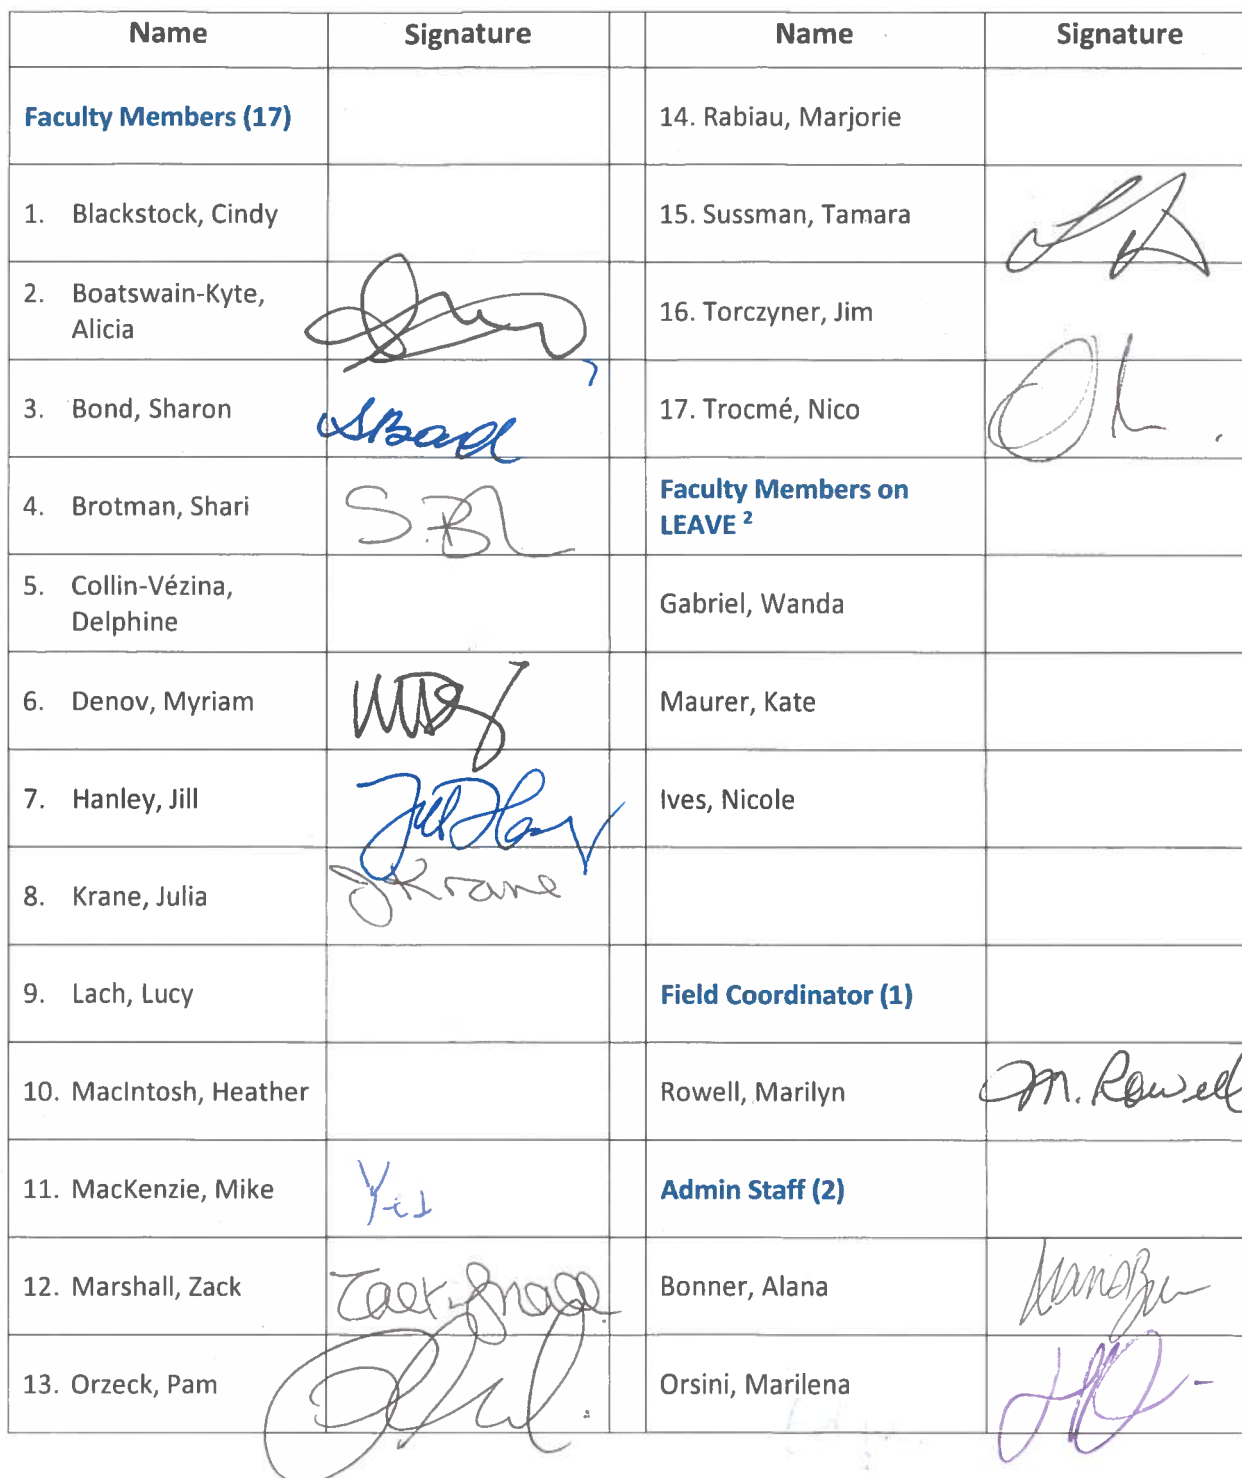 Name Signature Name Signature
Faculty Members (17) 14. Rabiau, Marjorie
1. Blackstock, Cindy 15. Sussman, Tamara
2. Boatswain-Kyte,
Alicia 16. Torczyner, Jim
3. Bond, Sharon SBond 17. Trocmé, Nico
4. Brotman, Shari Faculty Members on
LEAVE ²
5. Collin-Vézina,
Delphine Gabriel, Wanda
6. Denov, Myriam Maurer, Kate
7. Hanley, Jill Ives, Nicole
8. Krane, Julia JKrane
9. Lach, Lucy Field Coordinator (1)
10. MacIntosh, Heather Rowell, Marilyn M. Rowell
11. MacKenzie, Mike Yes Admin Staff (2)
12. Marshall, Zack Bonner, Alana
13. Orzeck, Pam Orsini, Marilena